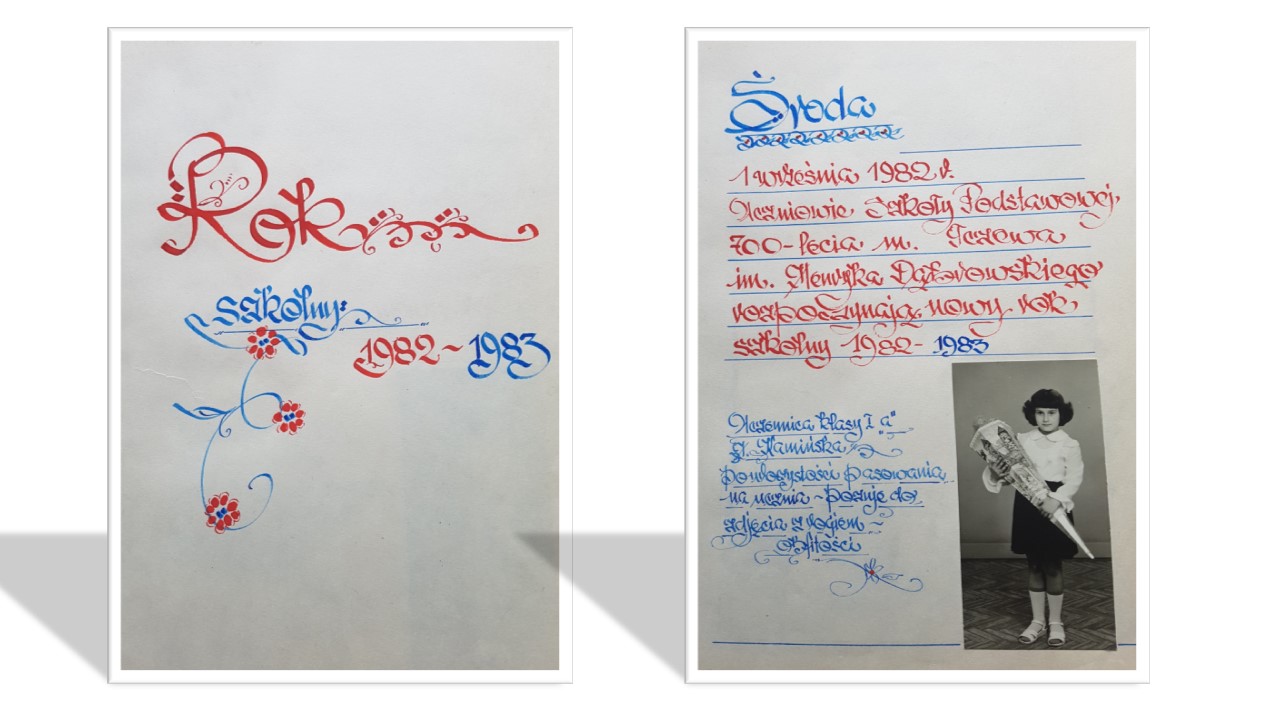 Rok
szkolny:
1982-1983
Środa
1 września 1982 r.
Uczniowie Szkoły Podstawowej
700-lecia m. Tczewa
im. Henryka Dąbrowskiego
rozpoczynają nowy rok
szkolny 1982-1983
Uczennica klasy I "a"
Kamińska
po uroczystości pasowania
na ucznia - pozuje do
zdjęcia z rogiem -
obfitości